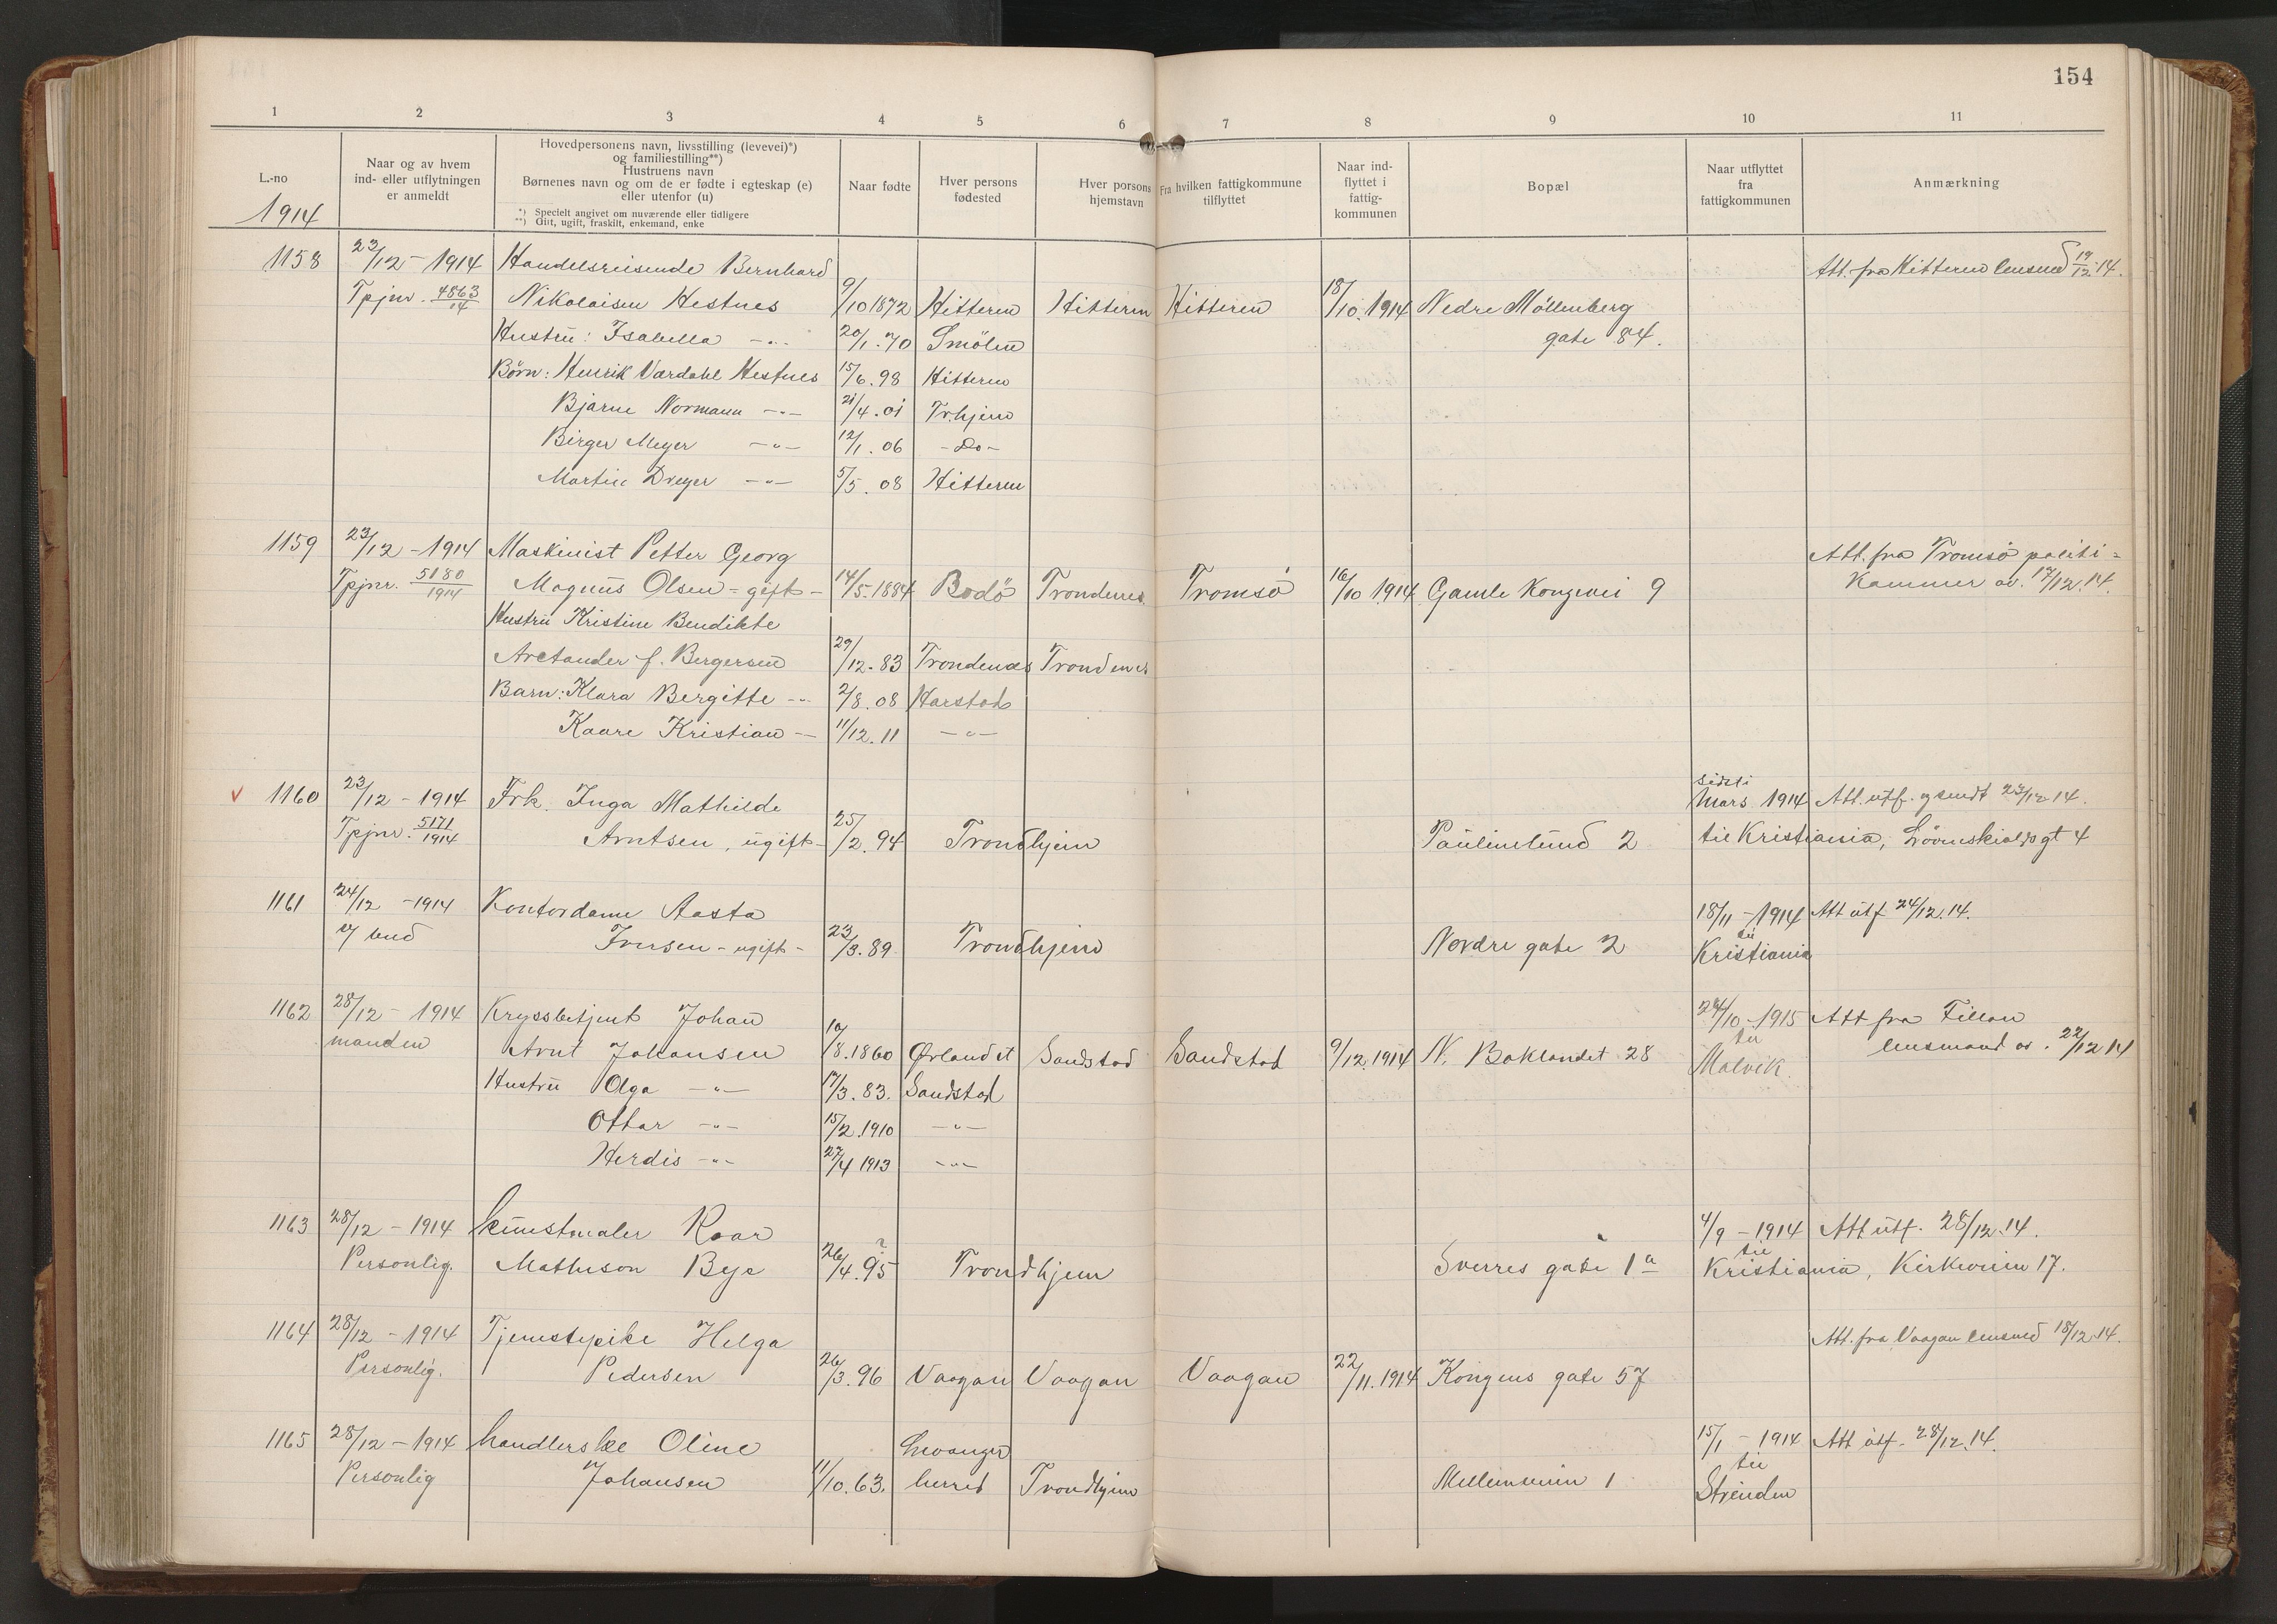 154
1 2 3 4 5 6 7 8 9 10 11
L.-no
1914
Naar og av hvem
ind- eller utflytningen
er anmeldt
Hovedpersonens navn, livsstilling (levevei)*)
og familiestilling**)
Hustruens navn
Børnenes navn og om de er fødte i egteskap (e)
eller utenfor (u)
*) Specielt angivet om nuværende eller tidligere
**) Gift, ugift, fraskilt, enkemand, enke
Naar fødte
Hver persons
fødested
Hver porsons
hjemstavn
Fra hvilken fattigkommune
tilflyttet
Naar ind-
flyttet i
fattig-
kommunen
Bopæl
Naar utflyttet
fra
fattigkommunen
Anmærkning
1158 23/12 - 1914 Handelsreisende Bernhard Att. fra Hitteren lensmd 19/12.14.
Tpjnr. 4863/14 Nikolaisen Hestnes 9/10 1872 Hitteren Hitteren Hitteren 18/10.1914 Nedre Möllenberg
Hustru: Isabella -"- 20/1.70 Smölen gate 84.
Børn: Henrik Værdahl Hestnes 15/6.98 Hitteren
Bjarne Normann -"- 21/4.01 Trhjem
Birger Meyer -"- 12/1.06 -Do-
Martin Dreyer -"- 5/5.08 Hitteren
1159 23/12 - 1914 Maskinist Petter Georg Att. fra Tromsö politi=
Tpjnr. 5180/1914 Magnus Olsen - gift - 14/5-1884 Bodö Trondenes Tromsö 16/10 1914 Gamle Kongevei 9 kammer av. 17/12.14.
Hustru Kristine Bendikte
Arctander f. Bergersen 29/12-83 Trondenæs Trondenes
Barn: Klara Bergitte -"- 2/8.08 Harstad
Kaare Kristian -"- 11/12.11 -"-
v 1160 23/12 - 1914 Frk. Inga Mathilde sidst i Mars 1914 Att. utf. og sendt 23/12 14.
Tpjnr. 5171/1914 Arntsen, ugift- 25/2.94 Trondhjem Paulinelund 2 til Kristiania, Lövenskiolds gt 4
1161 24/12 - 1914 Kontordame Aasta 18/11 - 1914 Att utf 24/12.14.
v/ bud Iversen - ugift - 23/3.89. Trondhjem Nordre gate 2 til Kristiania
1162 28/12 - 1914 Krysbetjent Johan 24/10-1915 Att fra Fillan
manden Arnt Johansen 10/8.1860 Ørlandet Sandstad Sandstad 9/12.1914 N. Baklandet 28 til lensmand av. 22/12 14
Hustru Olga -"- 17/3.83. Sandstad Malvik.
Ottar -"- 15/2.1910 -"-
Herdis -"- 27/4 1913 -"-
1163 28/12 - 1914 kunstmaler Roar 4/9 - 1914 Att utf. 28/12.14.
Personlig. Matheson Bye 26/4.95 ? Trondhjem Sverres gate 1a til Kristiania, Kirkeveien 17.
1164 28/12 - 1914 Tjenestepike Helga Att. fra Vaagan lensmd 18/12.14.
Personlig. Pedersen 26/3.96 Vaagan Vaagan Vaagan 22/11.1914 Kongens gate 57
1165 28/12 - 1914 handlerske Oline Levanger 15/1 - 1914 Att utf. 28/12.14.
Personlig Johansen 11/10.63. herred Trondhjem Mellemveien 1 til Strinden